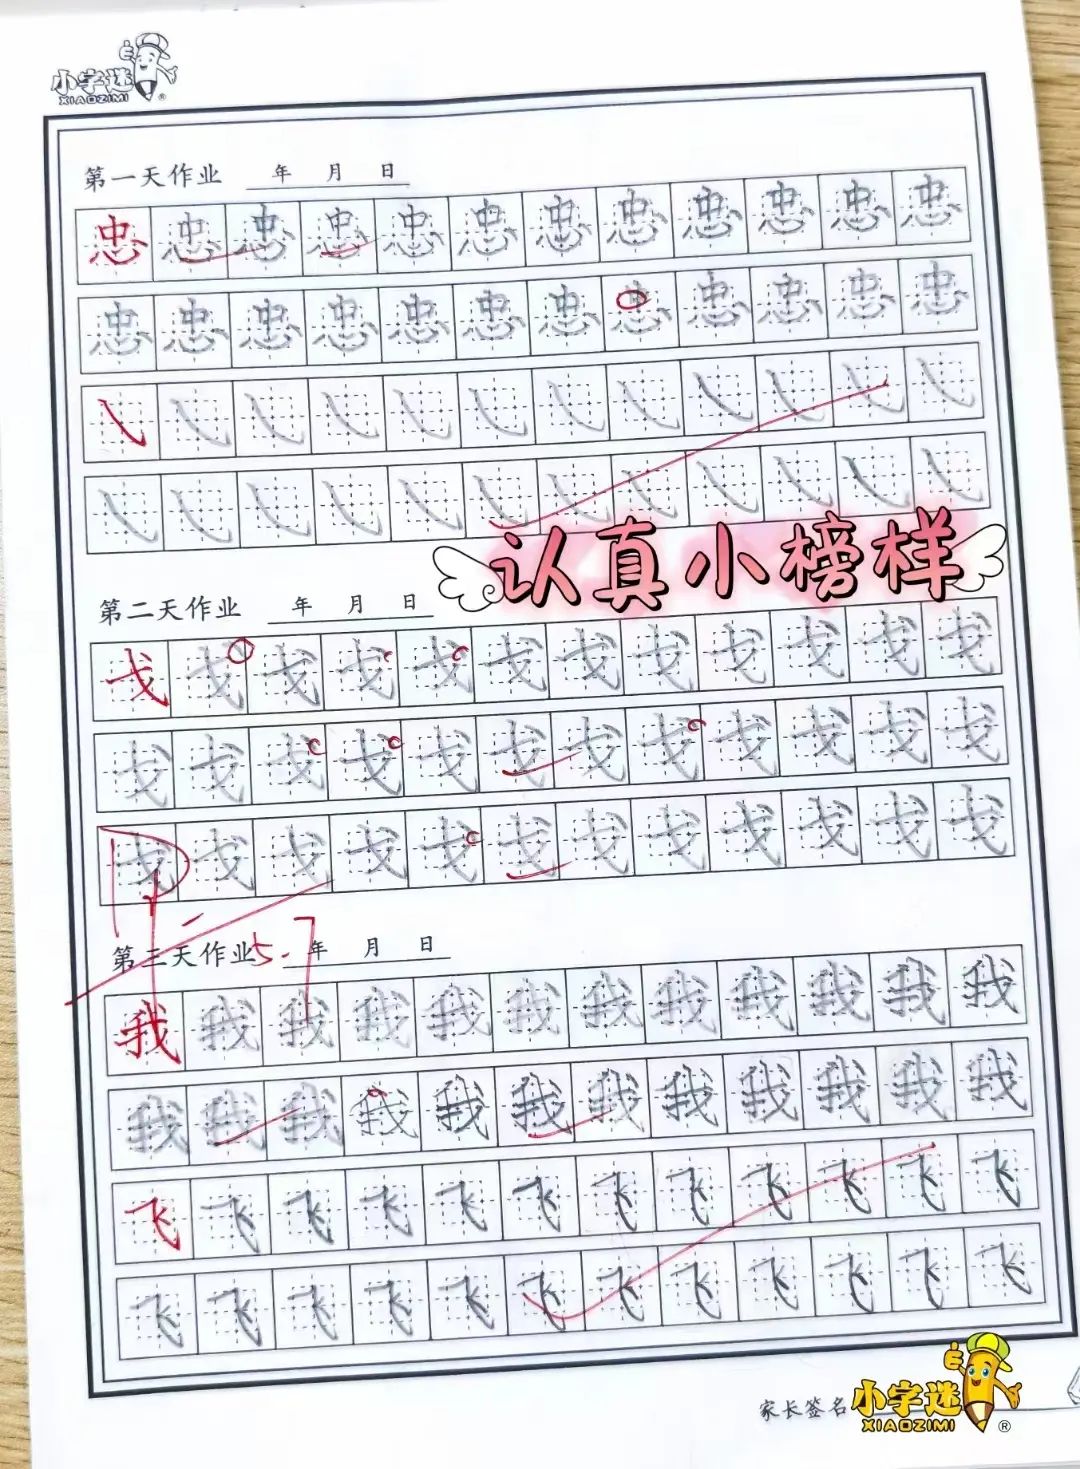 小字迷
XIAOZIMI ®
第一天作业 年 月 日
忠 忠 忠 忠 忠 忠 忠 忠 忠 忠 忠 忠
忠 忠 忠 忠 忠 忠 忠 忠 忠 忠 忠 忠
认真小榜样
第二天作业 年 月 日
戈 戈 戈 戈 戈 戈 戈 戈 戈 戈 戈 戈
戈 戈 戈 戈 戈 戈 戈 戈 戈 戈 戈 戈
戈 戈 戈 戈 戈 戈 戈 戈 戈 戈 戈 戈
第三天作业 5.7 年 月 日
我 我 我 我 我 我 我 我 我 我 我 我
我 我 我 我 我 我 我 我 我 我 我 我
飞 飞 飞 飞 飞 飞 飞 飞 飞 飞 飞 飞
飞 飞 飞 飞 飞 飞 飞 飞 飞 飞 飞 飞
家长签名
小字迷
XIAOZIMI ®